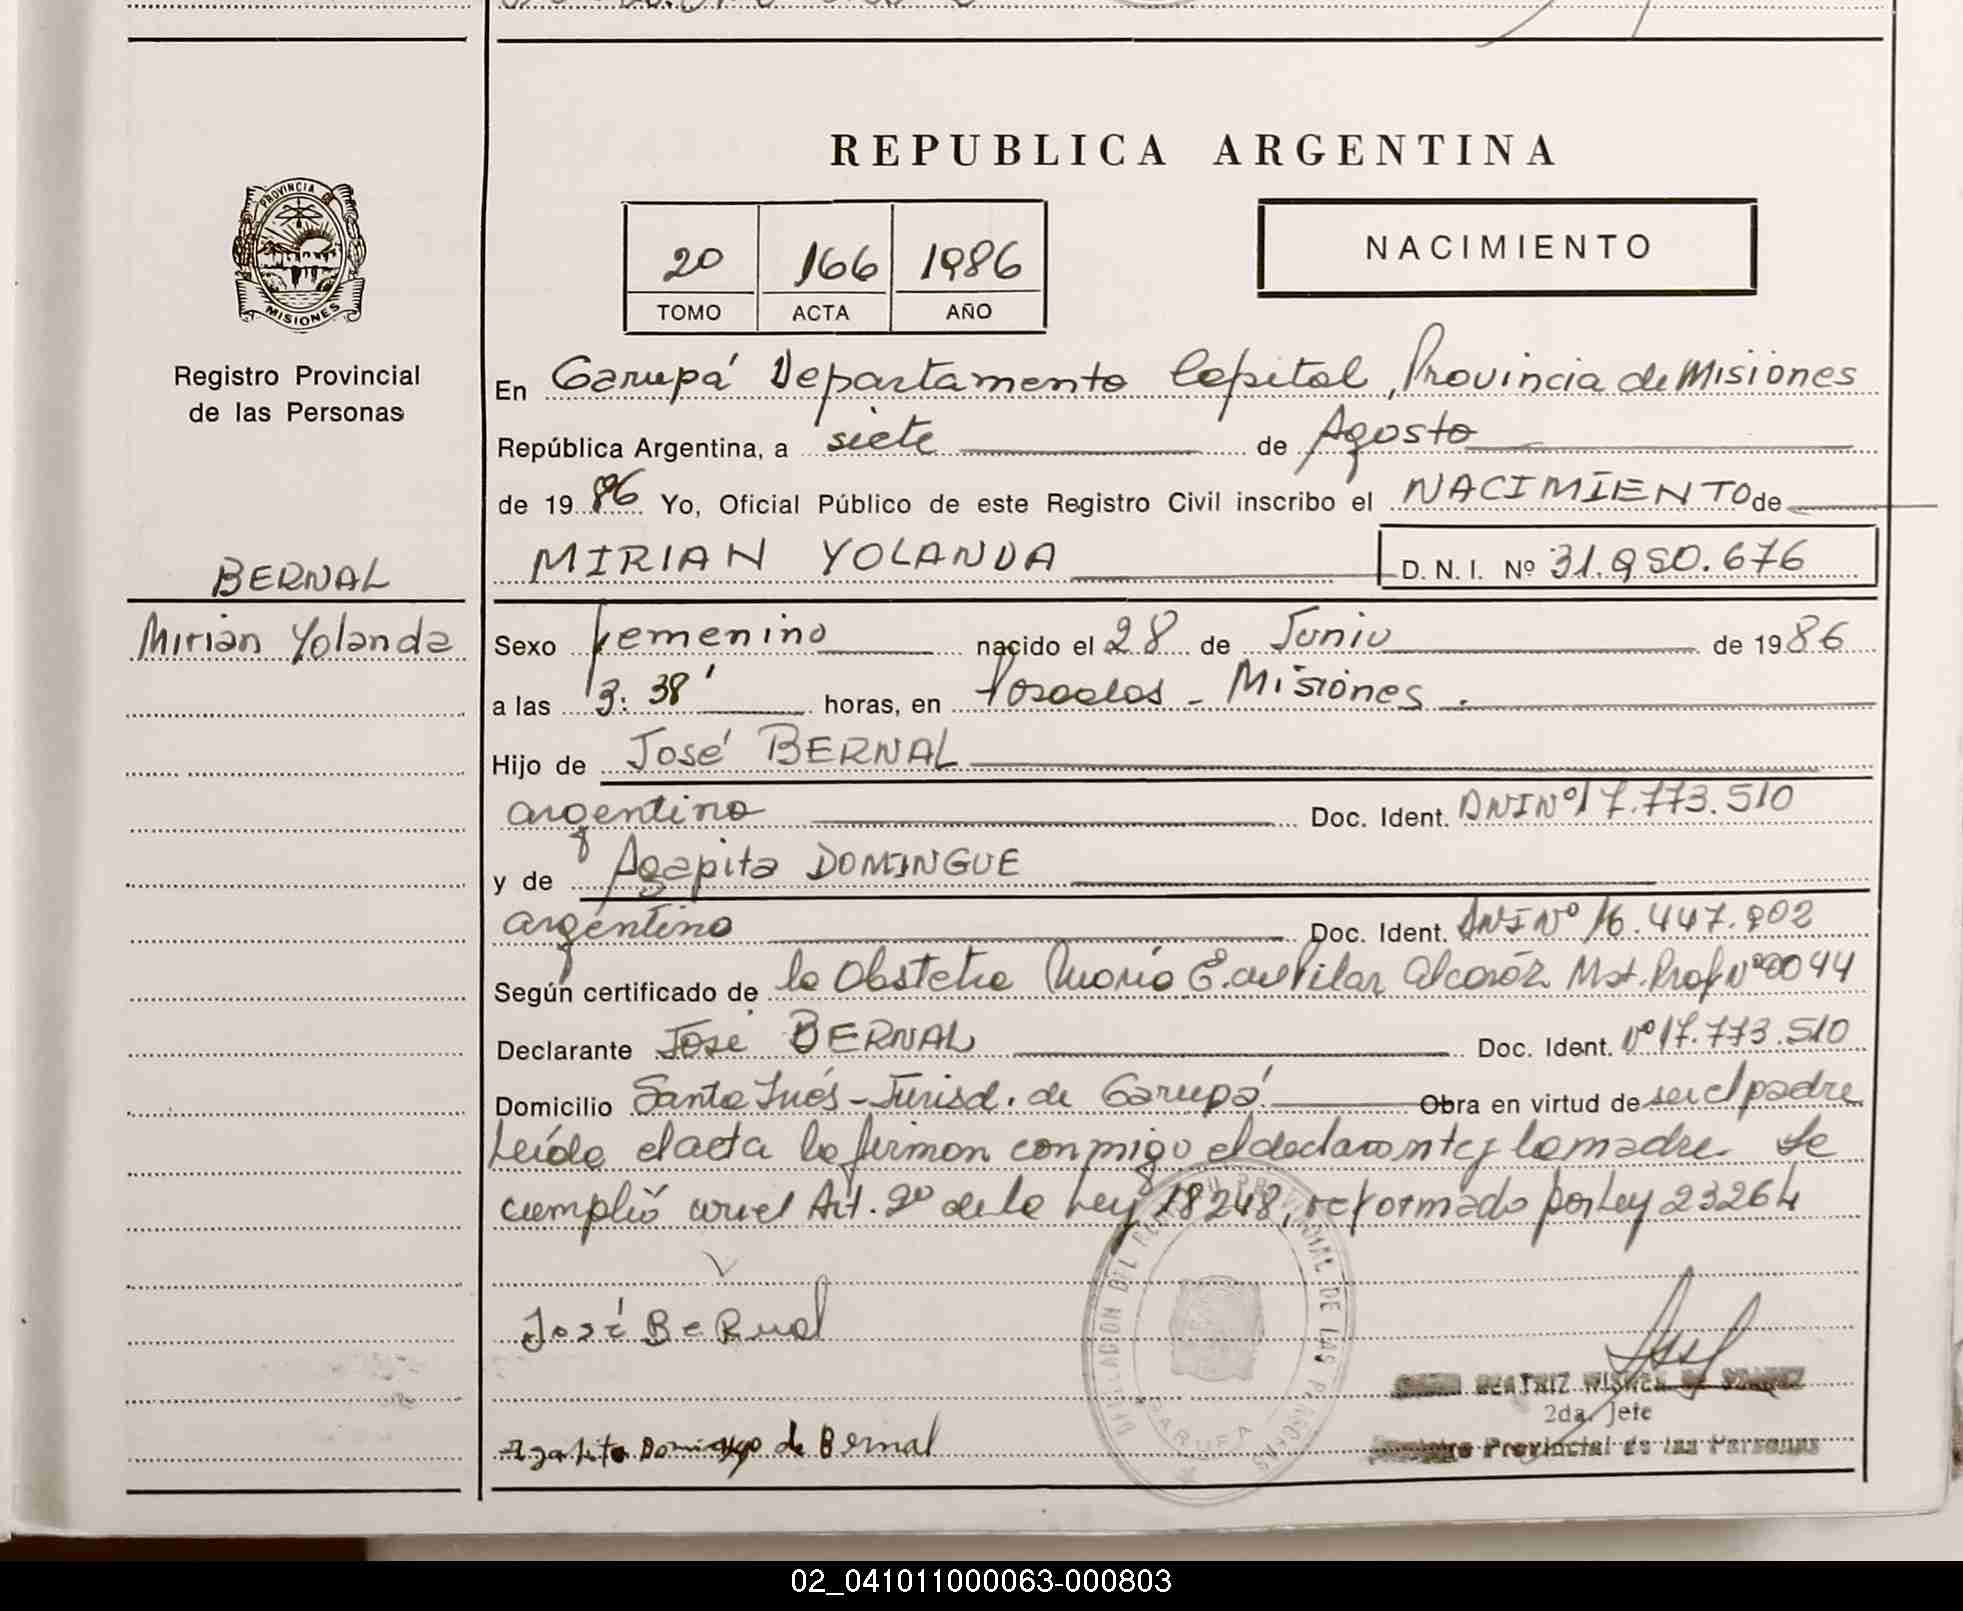 REPUBLICA ARGENTINA
PROVINCIA DE
MISIONES
Registro Provincial
de las Personas
20 166 1986
TOMO ACTA AÑO
NACIMIENTO
En Garupá Departamento Capital, Provincia de Misiones
República Argentina, a siete de Agosto
de 1986 Yo, Oficial Público de este Registro Civil inscribo el NACIMIENTO de
MIRIAN YOLANDA D. N. I. Nº 31.950.676
BERNAL
Mirian Yolanda
Sexo femenino nacido el 28 de Junio de 1986
a las 3:38' horas, en Posadas - Misiones.
Hijo de José BERNAL
argentino Doc. Ident. DNI Nº 17.773.510
y de Agapita DOMINGUE
argentino Doc. Ident. DNI Nº 16.447.902
Según certificado de la Obstetra María E. del Pilar Mat. Prof Nº 0044
Declarante José BERNAL Doc. Ident. Nº 17.773.510
Domicilio Santa Inés - Jurisd. de Garupá Obra en virtud de ser el padre
Leída el acta la firman conmigo el declarante y la madre. Se
cumplió con el Art. 2º de la Ley 18248, reformado por Ley 23264
José BeRnal
DELEGACION DEL REGISTRO PROVINCIAL DE LAS PERSONAS
GARUPA
BEATRIZ
2da. Jefe
Provincial de las Personas
Agapita Domingo de Bernal
02_041011000063-000803